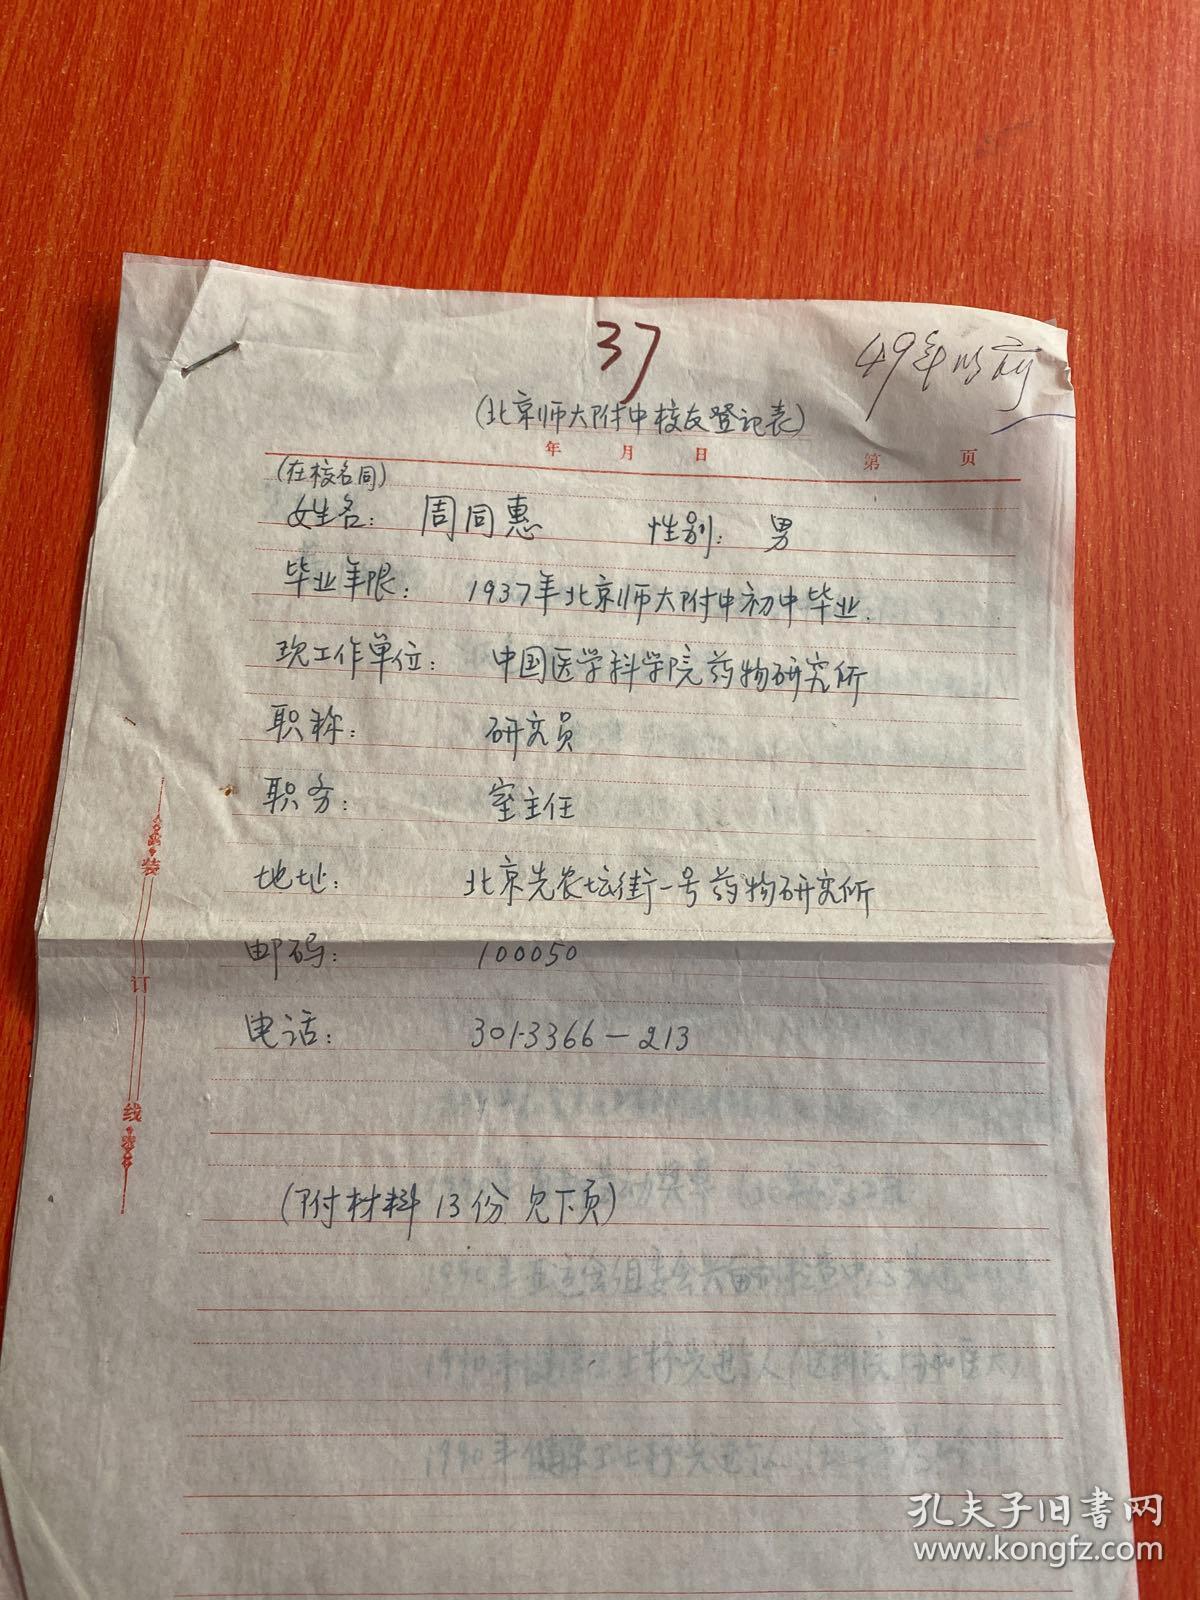 37
49年以前
(北京师大附中校友登记表)
年 月 日 第 页
(在校名同)
姓名: 周同惠 性别: 男
毕业年限: 1937年北京师大附中初中毕业.
现工作单位: 中国医学科学院药物研究所
职称: 研究员
职务: 室主任
地址: 北京先农坛街一号药物研究所
邮码: 100050
电话: 301-3366-213
(附材料13份 见下页)
装订线
孔夫子旧书网
www.kongfz.com